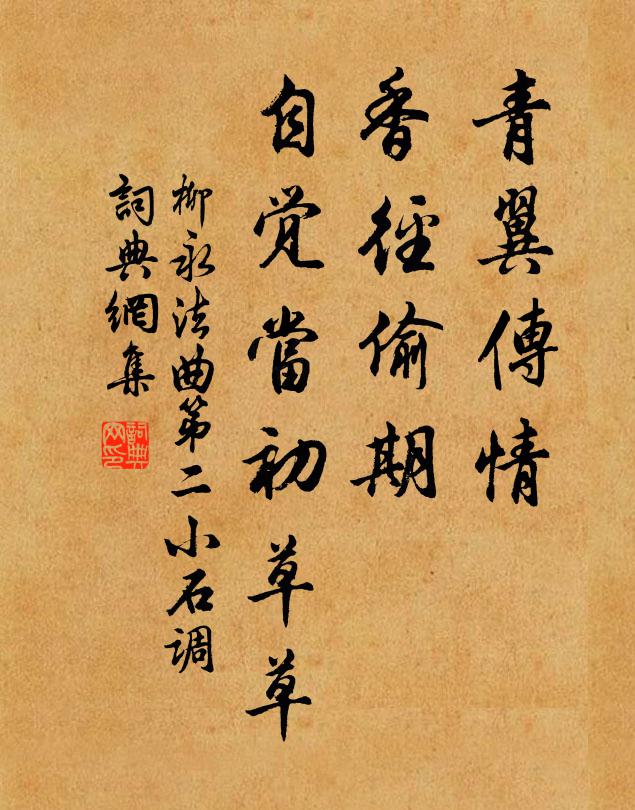 青翼傳情
香徑偷期
自覚當初草草
柳永法曲第二小石调
詞典網集
詞典网印